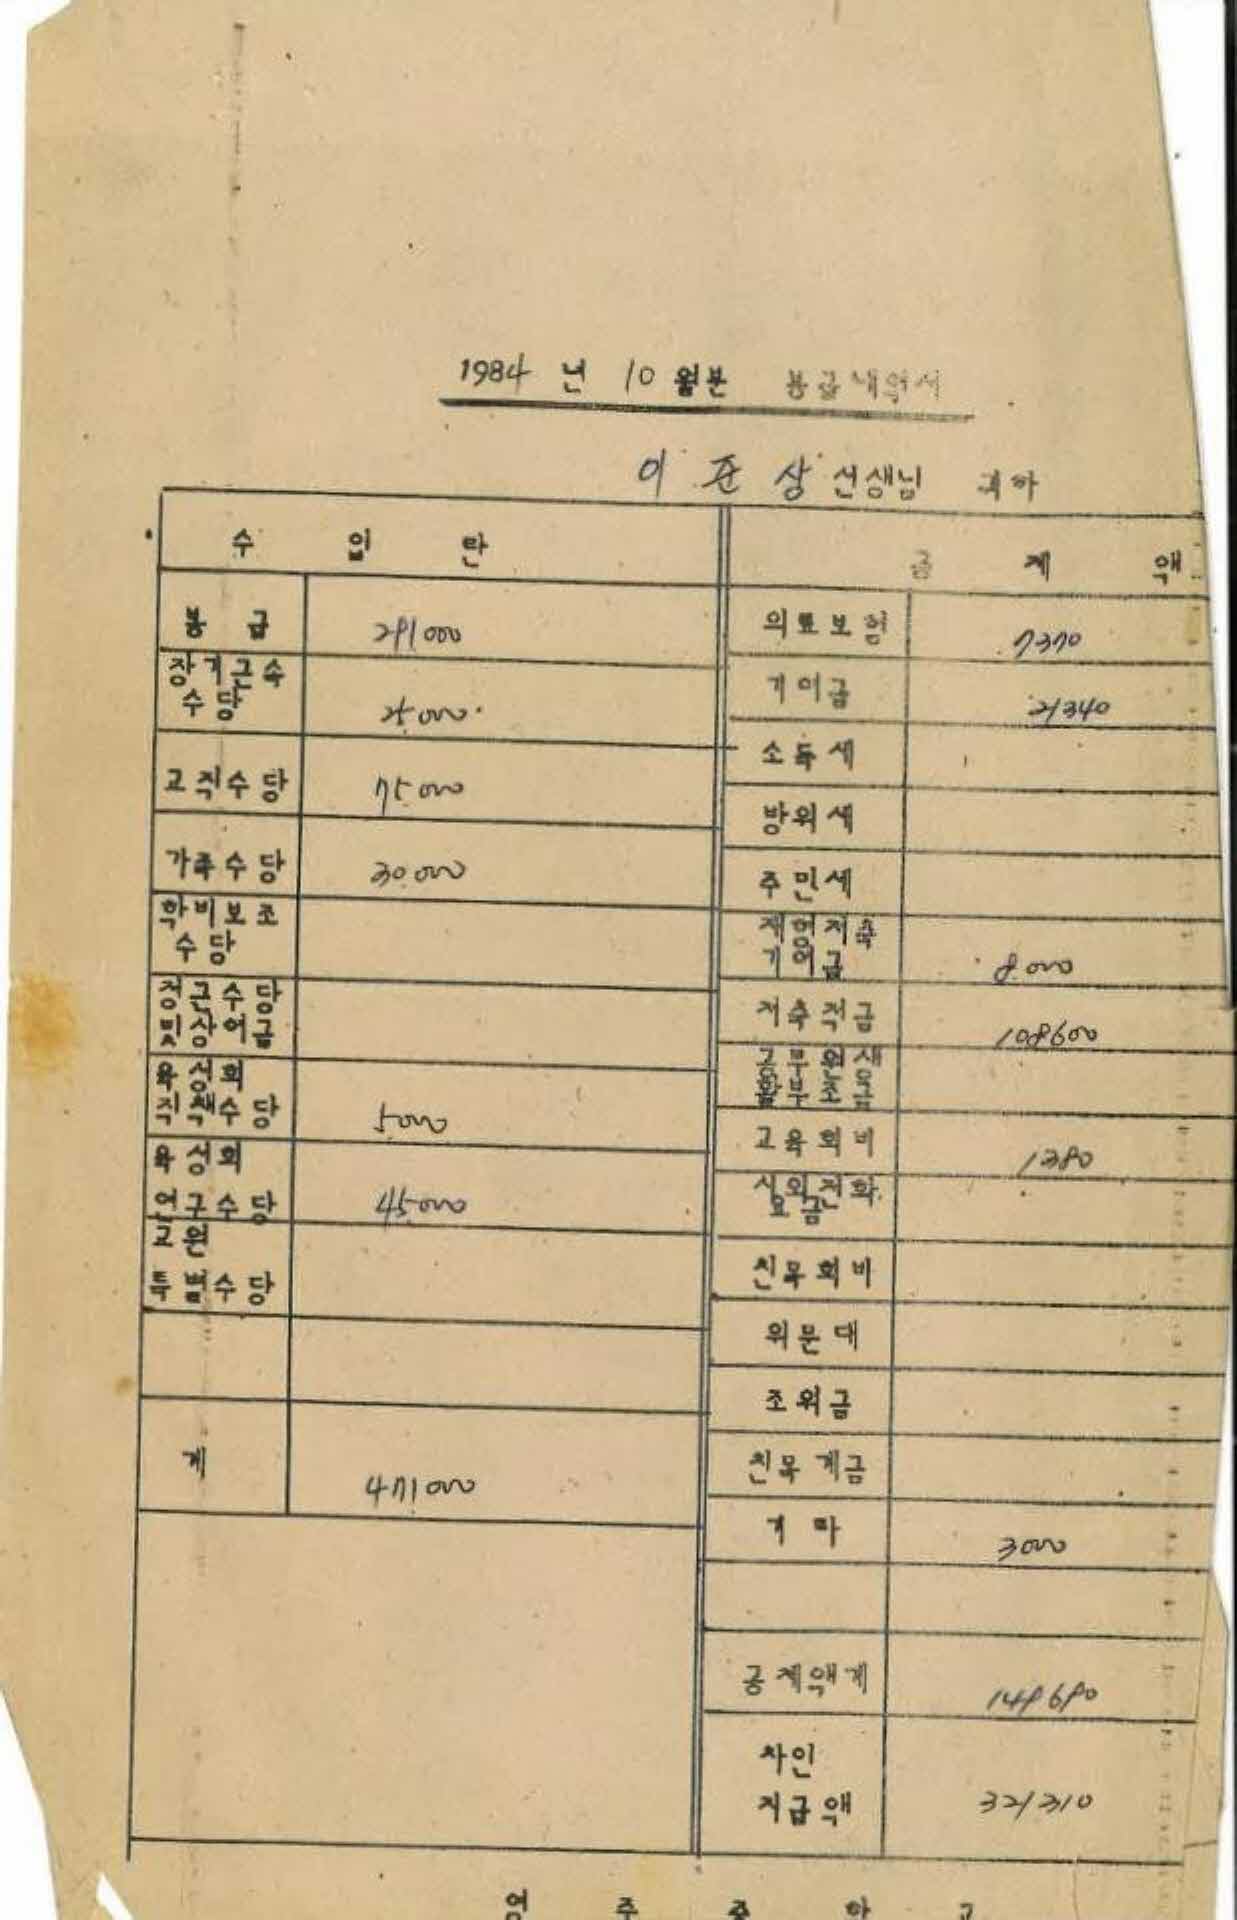 1984 년 10 월분 봉급내역서
이 준 상 선생님 귀하
수 입 란
봉 급 291000
장기근속
수당 25000
교직수당 75000
가족수당 30000
학비보조
수당
정근수당
및상여금
육성회
직책수당 5000
육성회
연구수당 45000
교원
특별수당
계 471000
공 제 액
의료보험 7370
기여금 21340
소득세
방위세
주민세
재형저축
기여금 8000
저축적금 108600
교육회비 1380
시외전화
요금
친목회비
위문대
조위금
친목계금
기타 3000
공제액계 149690
차인
지급액 321310
영 주 중 학 교